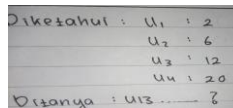 Diketahui : U1 : 2
U2 : 6
U3 : 12
U4 : 20
Ditanya : U13 ...... ?